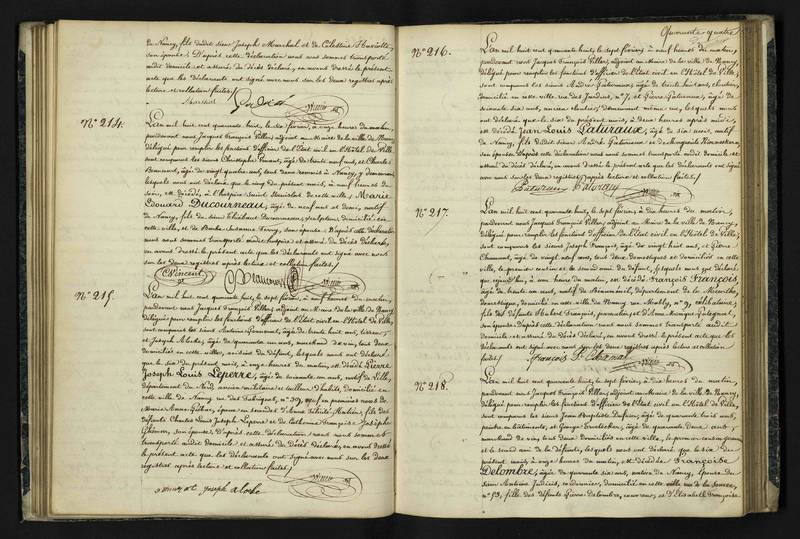 de Nancy, fils dudit sieur Joseph Marchal et de Célestine
son épouse; D'après cette déclaration nous nous sommes transporté
audit domicile et assuré du décès déclaré, en avons dressé le présent
acte que les déclarants ont signé avec nous sur les deux registres après
lecture et collation faites
Marchal
N° 214.
L'an mil huit cent quarante huit, le six février, à onze heures du matin,
pardevant nous Jacques François Villers, adjoint au Maire de la ville de Nancy
délégué pour remplir les fonctions d'officier de l'état civil en l'Hôtel de Ville
sont comparus les sieurs Christophe Vincent, âgé de trente neuf ans, et Charles
Beaucourt, âgé de vingt quatre ans, tous deux à Nancy, y demeurant,
lesquels nous ont déclaré que le cinq du présent mois, à neuf heures du
soir, est décédé, à l'hospice Saint Stanislas de cette ville, Marie
Edouard Ducourneau, âgé de neuf ans et demi, natif
de Nancy, fils de sieur Thiébaut Ducourneau, sculpteur, domicilié en
cette ville, et de son épouse. D'après cette déclaration
nous nous sommes transporté audit hospice et assuré du décès déclaré,
en avons dressé le présent acte que les déclarants ont signé avec nous
sur les deux registres après lecture et collation faites.
CVincent
N° 215.
L'an mil huit cent quarante huit, le sept février, à neuf heures du matin,
pardevant nous Jacques François Villers, adjoint au Maire de la ville de Nancy
délégué pour remplir les fonctions d'officier de l'état civil en l'Hôtel de Ville,
sont comparus les sieurs Antoine âgé de trente huit ans,
et Joseph Aloche, âgé de quarante un ans, marchand de vin, tous deux
domiciliés en cette ville, voisins du défunt, lesquels nous ont déclaré
que le six du présent mois, à onze heures du matin, est décédé Pierre
Joseph Louis Leperre, âgé de soixante un ans, natif de Lille,
département du Nord, ancien militaire et tailleur d'habits, domicilié en
cette ville de Nancy, rue des Fabriques, n° 39, veuf en premières noces de
Marie Anne époux en secondes d'Anne fils des
défunts Charles Louis Joseph Leperre et de Catherine Françoise Josèphe
son épouse. D'après cette déclaration nous nous sommes
transporté audit domicile et assuré du décès déclaré, en avons dressé
le présent acte que les déclarants ont signé avec nous sur les deux
registres après lecture et collation faites.
joseph aloche
Quarante quatre
N° 216.
L'an mil huit cent quarante huit, le sept février, à neuf heures du matin,
pardevant nous Jacques François Villers, adjoint au Maire de la ville de Nancy,
délégué pour remplir les fonctions d'officier de l'état civil en l'Hôtel de Ville,
sont comparus les sieurs André Latureaux, âgé de trente huit ans,
domicilié en cette ville rue des Jardins, n° 7, et Pierre Latureaux, âgé de
soixante six ans, demeurant même rue, lesquels nous
ont déclaré que le six du présent mois, à deux heures après midi,
est décédé Jean Louis Latureaux, âgé de six mois, natif
de Nancy, fils dudit sieur André Latureaux et de Marguerite
son épouse. D'après cette déclaration nous nous sommes transporté audit domicile et
assuré du décès déclaré, en avons dressé le présent acte que les déclarants ont signé
avec nous sur les deux registres, après lecture et collation faites.
N° 217.
L'an mil huit cent quarante huit, le sept février, à dix heures du matin,
pardevant nous Jacques François Villers, adjoint au Maire de la ville de Nancy,
délégué pour remplir les fonctions d'officier de l'état civil en l'Hôtel de Ville,
sont comparus les sieurs Joseph François, âgé de vingt huit ans, et Pierre
Chaumont, âgé de vingt neuf ans, tous deux domestiques et domiciliés en cette
ville, le premier cousin et le second ami du défunt, lesquels nous ont déclaré
que à une heure du matin, est décédé François François,
âgé de trente un ans, natif de département de la Meurthe,
domestique, domicilié en cette ville de Nancy rue n° 9, célibataire,
fils des défunts Hubert François, et d'Anne
son épouse. D'après cette déclaration nous nous sommes transporté audit
domicile et assuré du décès déclaré, en avons dressé le présent acte que les
déclarants ont signé avec nous sur les deux registres après lecture et collation
faites.
François
N° 218.
L'an mil huit cent quarante huit, le sept février, à dix heures du matin,
pardevant nous Jacques François Villers, adjoint au Maire de la ville de Nancy,
délégué pour remplir les fonctions d'officier de l'état civil en l'Hôtel de Ville,
sont comparus les sieurs Jean Baptiste âgé de quarante trois ans,
peintre en bâtiments, et Georges âgé de quarante deux ans,
marchand de vin, tous deux domiciliés en cette ville, le premier
et le second ami de la défunte, lesquels nous ont déclaré que le six du
présent mois, à onze heures du matin, est décédée Françoise
Delombre, âgée de quarante six ans, native de Nancy, épouse du
sieur Antoine cordonnier, domiciliée en cette ville
n° 93, fille des défunts Pierre Delombre, couvreur, et d'Elisabeth Françoise